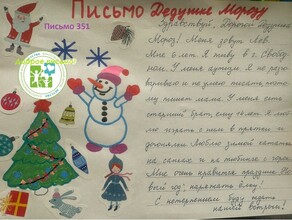 Письмо Дедушке Морозу
Письмо 351
Здравствуй, Дорогой дедушка
Мороз! Меня зовут Лев.
Мне 6 лет. Я живу в г. Свобод-
ном. У меня аутизм. Я не разго-
вариваю и не умею писать, поэто-
му пишет мама. У меня есть
старший брат, ему 10 лет. Я люб-
лю играть с ним в прятки и
догонялки. Люблю зимой кататься
на санках и на тюбинге с горки.
Мне очень нравится праздник Но-
вый год, наряжать ёлку!
С нетерпением буду ждать
нашей встречи!